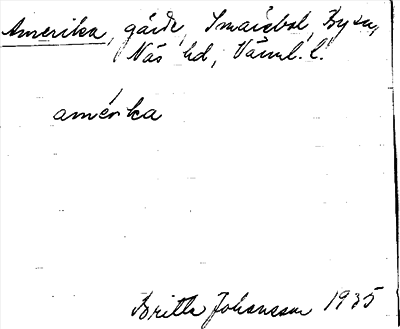 Amerika, gärde, Smaicbol, By sn,
Näs hd, Värml. l.
amérika
Britta Johansson 1935